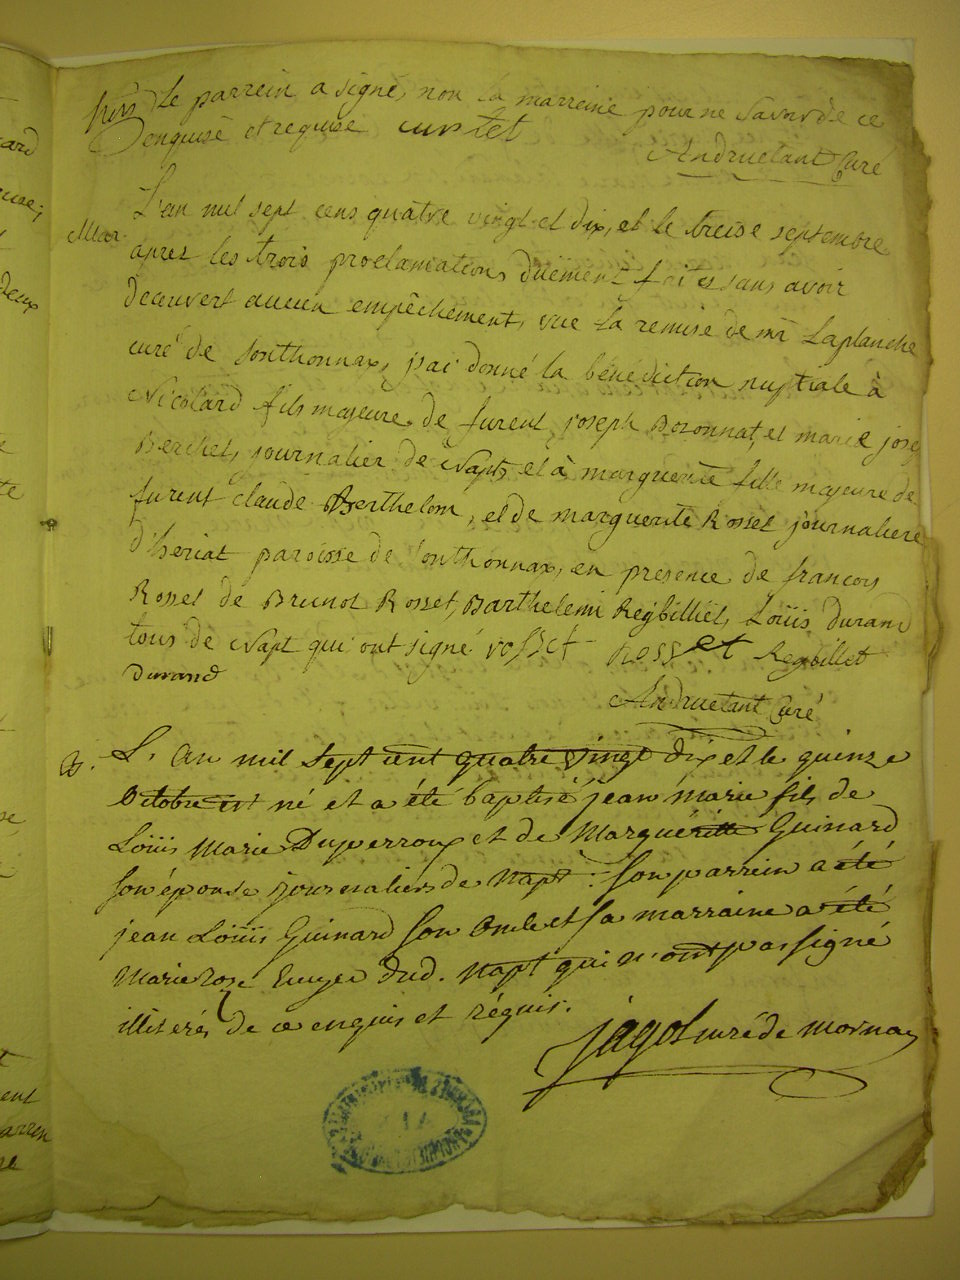 Le parrein a signé, non la marreine pour ne savoir de ce
enquise et requise curtet
Andruetant Curé
Mar.
L'an mil sept cens quatre vingt et dix, et le treise septembre
apres les trois proclamations duëment faites sans avoir
decuvert aucun empêchement, vue la remise de mr Laplanche
curé de Sonthonnax, j'ai donné la bénédiction nuptiale à
Nicolard fils majeure de furent joseph Bozonnat, et marie jose
Berchet, journalier de Napt, et à marguerite fille majeure de
furent claude Berthelom, et de marguerite Rosset journaliere
d'heriat paroisse de Sonthonnax, en presence de françois
Rosset de Brunot Rosset, Barthelemi Regbilliet, Loüis Durand
tous de Napt qui ont signé rosset rosset Regbillet
Durand
Andruetant Curé
B. L'An mil Sept cent quatre vingt dix et le quinze
Octobre est né et a été baptisé jean marie fils de
Loüis Marie Duperroux et de Marguéritte Guinard
son épouse journaliers de Napt : Son parrein a été
jean Loüis Guinard son Oncle et sa marraine a été
Marie roze dud. Napt qui n'ont pas signé
illiterés de ce enquis et réquis.
jagot curé de mornay